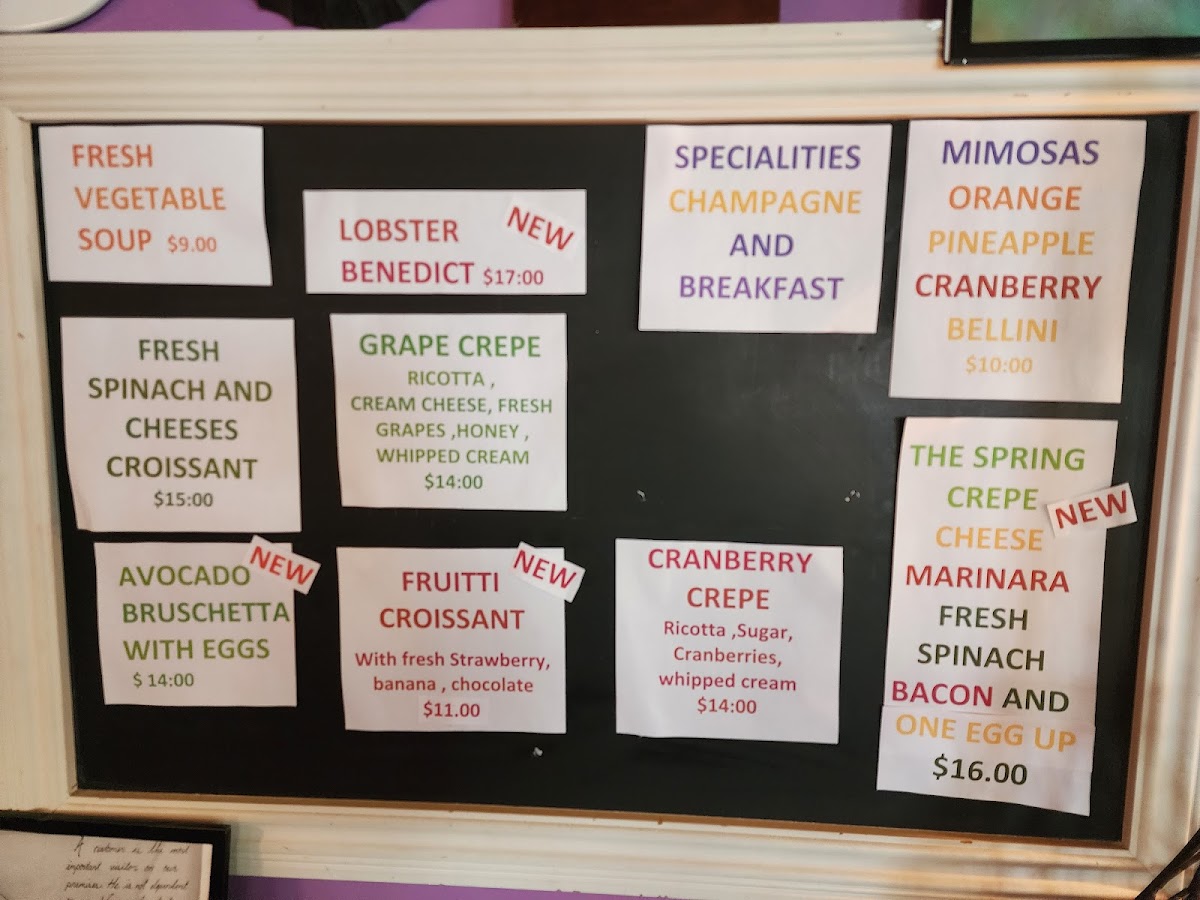 FRESH
VEGETABLE
SOUP $9.00
LOBSTER
BENEDICT $17:00
NEW
SPECIALITIES
CHAMPAGNE
AND
BREAKFAST
MIMOSAS
ORANGE
PINEAPPLE
CRANBERRY
BELLINI
$10:00
FRESH
SPINACH AND
CHEESES
CROISSANT
$15:00
GRAPE CREPE
RICOTTA ,
CREAM CHEESE, FRESH
GRAPES ,HONEY ,
WHIPPED CREAM
$14:00
THE SPRING
CREPE
NEW
CHEESE
MARINARA
FRESH
SPINACH
BACON AND
ONE EGG UP
$16.00
AVOCADO
NEW
BRUSCHETTA
WITH EGGS
$ 14:00
FRUITTI
NEW
CROISSANT
With fresh Strawberry,
banana , chocolate
$11.00
CRANBERRY
CREPE
Ricotta ,Sugar,
Cranberries,
whipped cream
$14:00
A customer is the most
important visitor on our
premises. He is not dependent